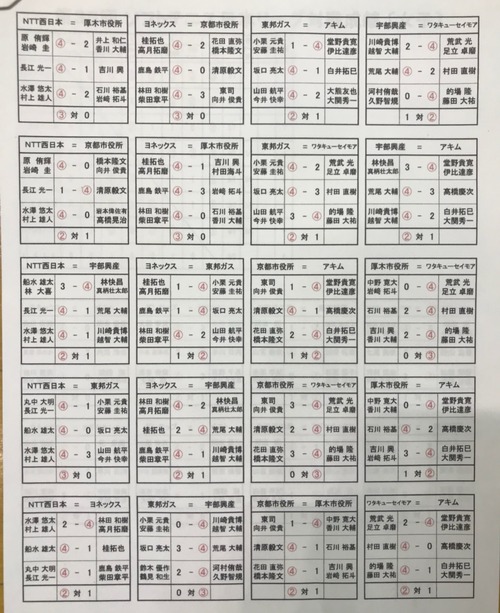 NTT西日本 = 厚木市役所
原 侑輝 ④ - 2 井上 和仁
岩崎 圭 香川 大輔
長江 光一 ④ - 2 吉川 興
水澤 悠太 ④ - 2 石川 裕基
村上 雄人 岩崎 拓斗
③ 対 0
ヨネックス = 京都市役所
桂拓也 ④ - 2 花田 直弥
高月拓磨 橋本隆文
鹿島 鉄平 ④ - 0 清原毅文
林田 和樹 ④ - 3 東司
柴田章平 向井 俊貴
③ 対 0
東邦ガス = アキム
小栗 元貴 1 - ④ 堂野貴寛
安藤 圭祐 伊比達彦
坂口 亮太 ④ - 1 白井拓巳
山田 航平 ④ - 2 大辰友也
今井 快幸 大関秀一
② 対 1
宇部興産 = ワタキューセイモア
川﨑貴博 ④ - 2 荒武 光
越智大輔 足立 卓磨
荒尾 大輔 ④ - 2 村田 直樹
河村侑哉 0 - ④ 的場 隆
久野智規 藤田 大祐
② 対 1
NTT西日本 = 京都市役所
原 侑輝 ④ - 0 橋本隆文
岩崎 圭 向井 俊貴
長江 光一 1 - ④ 清原毅文
水澤 悠太 ④ - 0 岩本侑佐有
村上 雄人 高橋晃治
② 対 1
ヨネックス = 厚木市役所
桂拓也 ④ - 1 吉川 興
高月拓磨 村田海斗
鹿島 鉄平 ④ - 3 岩崎 拓斗
林田 和樹 ④ - 0 石川 裕基
柴田章平 香川 大輔
③ 対 0
東邦ガス = ワタキューセイモア
小栗 元貴 ④ - 2 荒武 光
安藤 圭祐 足立 卓磨
坂口 亮太 ④ - 3 村田 直樹
山田 航平 3 - ④ 的場 隆
今井 快幸 藤田 大祐
② 対 1
宇部興産 = アキム
林快昌 3 - ④ 堂野貴寛
真柄壮太郎 伊比達彦
荒尾 大輔 ④ - 3 高橋慶次
川﨑貴博 ④ - 2 白井拓巳
越智大輔 大関秀一
② 対 1
NTT西日本 = 宇部興産
船水 雄太 3 - ④ 林快昌
林 大喜 真柄壮太郎
長江 光一 ④ - 1 荒尾 大輔
水澤 悠太 ④ - 1 川﨑貴博
村上 雄人 越智 大輔
② 対 1
ヨネックス = 東邦ガス
桂拓也 ④ - 1 小栗 元貴
高月拓磨 安藤 圭祐
鹿島 鉄平 1 - ④ 坂口 亮太
林田 和樹 ④ - 2 山田 航平
柴田章平 今井 快幸
1 対 ②
京都市役所 = アキム
東司 1 - ④ 堂野貴寛
向井 俊貴 伊比達彦
清原毅文 ④ - 1 高橋慶次
花田 直弥 ④ - 2 白井拓巳
橋本隆文 大関秀一
② 対 1
厚木市役所 = ワタキューセイモア
中野 寛大 0 - ④ 荒武 光
岩崎 拓斗 足立 卓磨
石川 裕基 2 - ④ 村田 直樹
吉川 興 2 - ④ 的場 隆
香川 大輔 藤田 大祐
0 対 ③
NTT西日本 = 東邦ガス
丸中 大明 ④ - 1 小栗 元貴
長江 光一 安藤 圭祐
船水 雄太 ④ - 0 坂口 亮太
水澤 悠太 ④ - 3 山田 航平
村上 雄人 今井 快幸
③ 対 0
ヨネックス = 宇部興産
林田 和樹 ④ - 2 林快昌
高月拓磨 真柄壮太郎
桂拓也 2 - ④ 荒尾 大輔
鹿島 鉄平 ④ - 1 川﨑貴博
柴田章平 越智 大輔
② 対 1
京都市役所 = ワタキューセイモア
東司 3 - ④ 荒武 光
向井 俊貴 足立 卓磨
清原毅文 ④ - 2 村田 直樹
花田 直弥 3 - ④ 的場 隆
橋本隆文 藤田 大祐
1 対 ②
厚木市役所 = アキム
中野 寛大 0 - ④ 堂野貴寛
香川 大輔 伊比達彦
石川 裕基 ④ - 2 高橋慶次
吉川 興 3 - ④ 白井拓巳
岩崎 拓斗 大関秀一
1 対 ②
NTT西日本 = ヨネックス
水澤 悠太 2 - ④ 林田 和樹
村上 雄人 高月拓磨
船水 雄太 ④ - 1 桂拓也
丸中 大明 ④ - 1 鹿島 鉄平
長江 光一 柴田章平
② 対 1
東邦ガス = 宇部興産
小栗 元貴 0 - ④ 川﨑貴博
安藤 圭祐 越智大輔
坂口 亮太 3 - ④ 荒尾 大輔
鈴木 優作 2 - ④ 河村侑哉
鶴見 和生 久野智規
0 対 ③
京都市役所 = 厚木市役所
東司 ④ - 1 中野 寛大
向井 俊貴 香川 大輔
清原毅文 ④ - 1 石川 裕基
花田 直弥 ④ - 1 吉川 興
橋本隆文 岩崎 拓斗
③ 対 0
ワタキューセイモア = アキム
荒武 光 2 - ④ 堂野貴寛
足立 卓磨 伊比達彦
村田 直樹 ④ - 0 高橋慶次
的場 隆 ④ - 1 白井拓巳
藤田 大祐 大関秀一
② 対 1